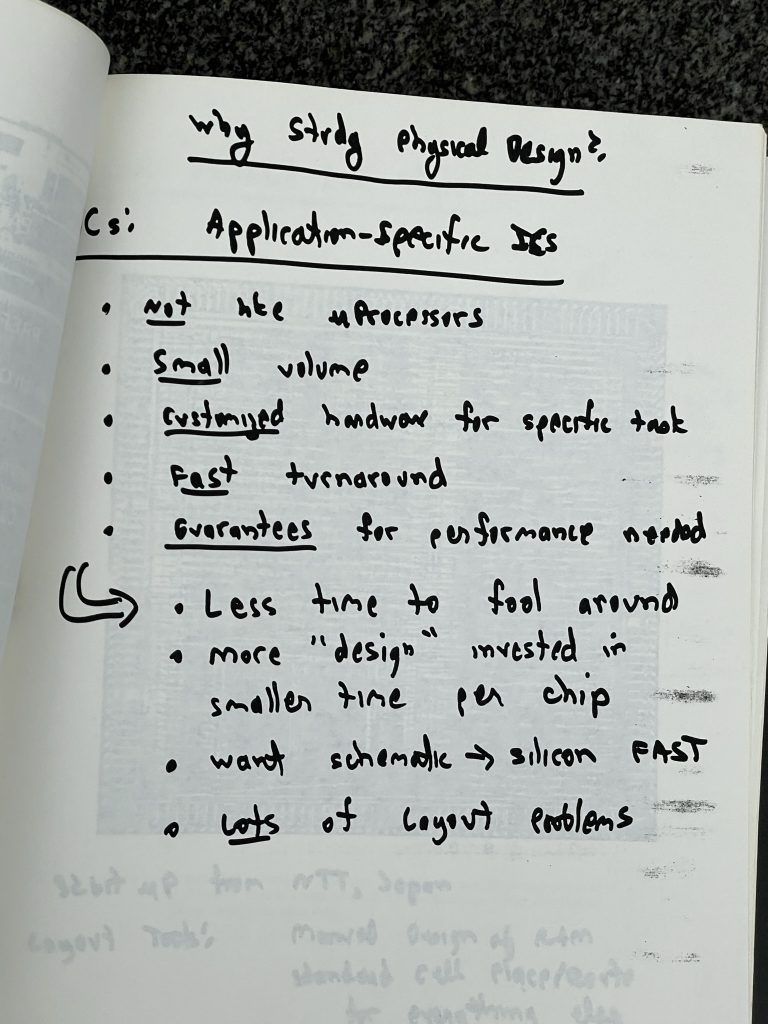 Why Study Physical Design?
Cs: Application-Specific ICs
• Not like µProcessors
• Small volume
• Customized hardware for specific task
• Fast turnaround
• Guarantees for performance needed
• Less time to fool around
• more "design" invested in
smaller time per chip
• want schematic → silicon FAST
• Lots of layout problems
32bit µP from NTT, Japan
Layout Tools: Manual Design of
standard cell placements
for everything else